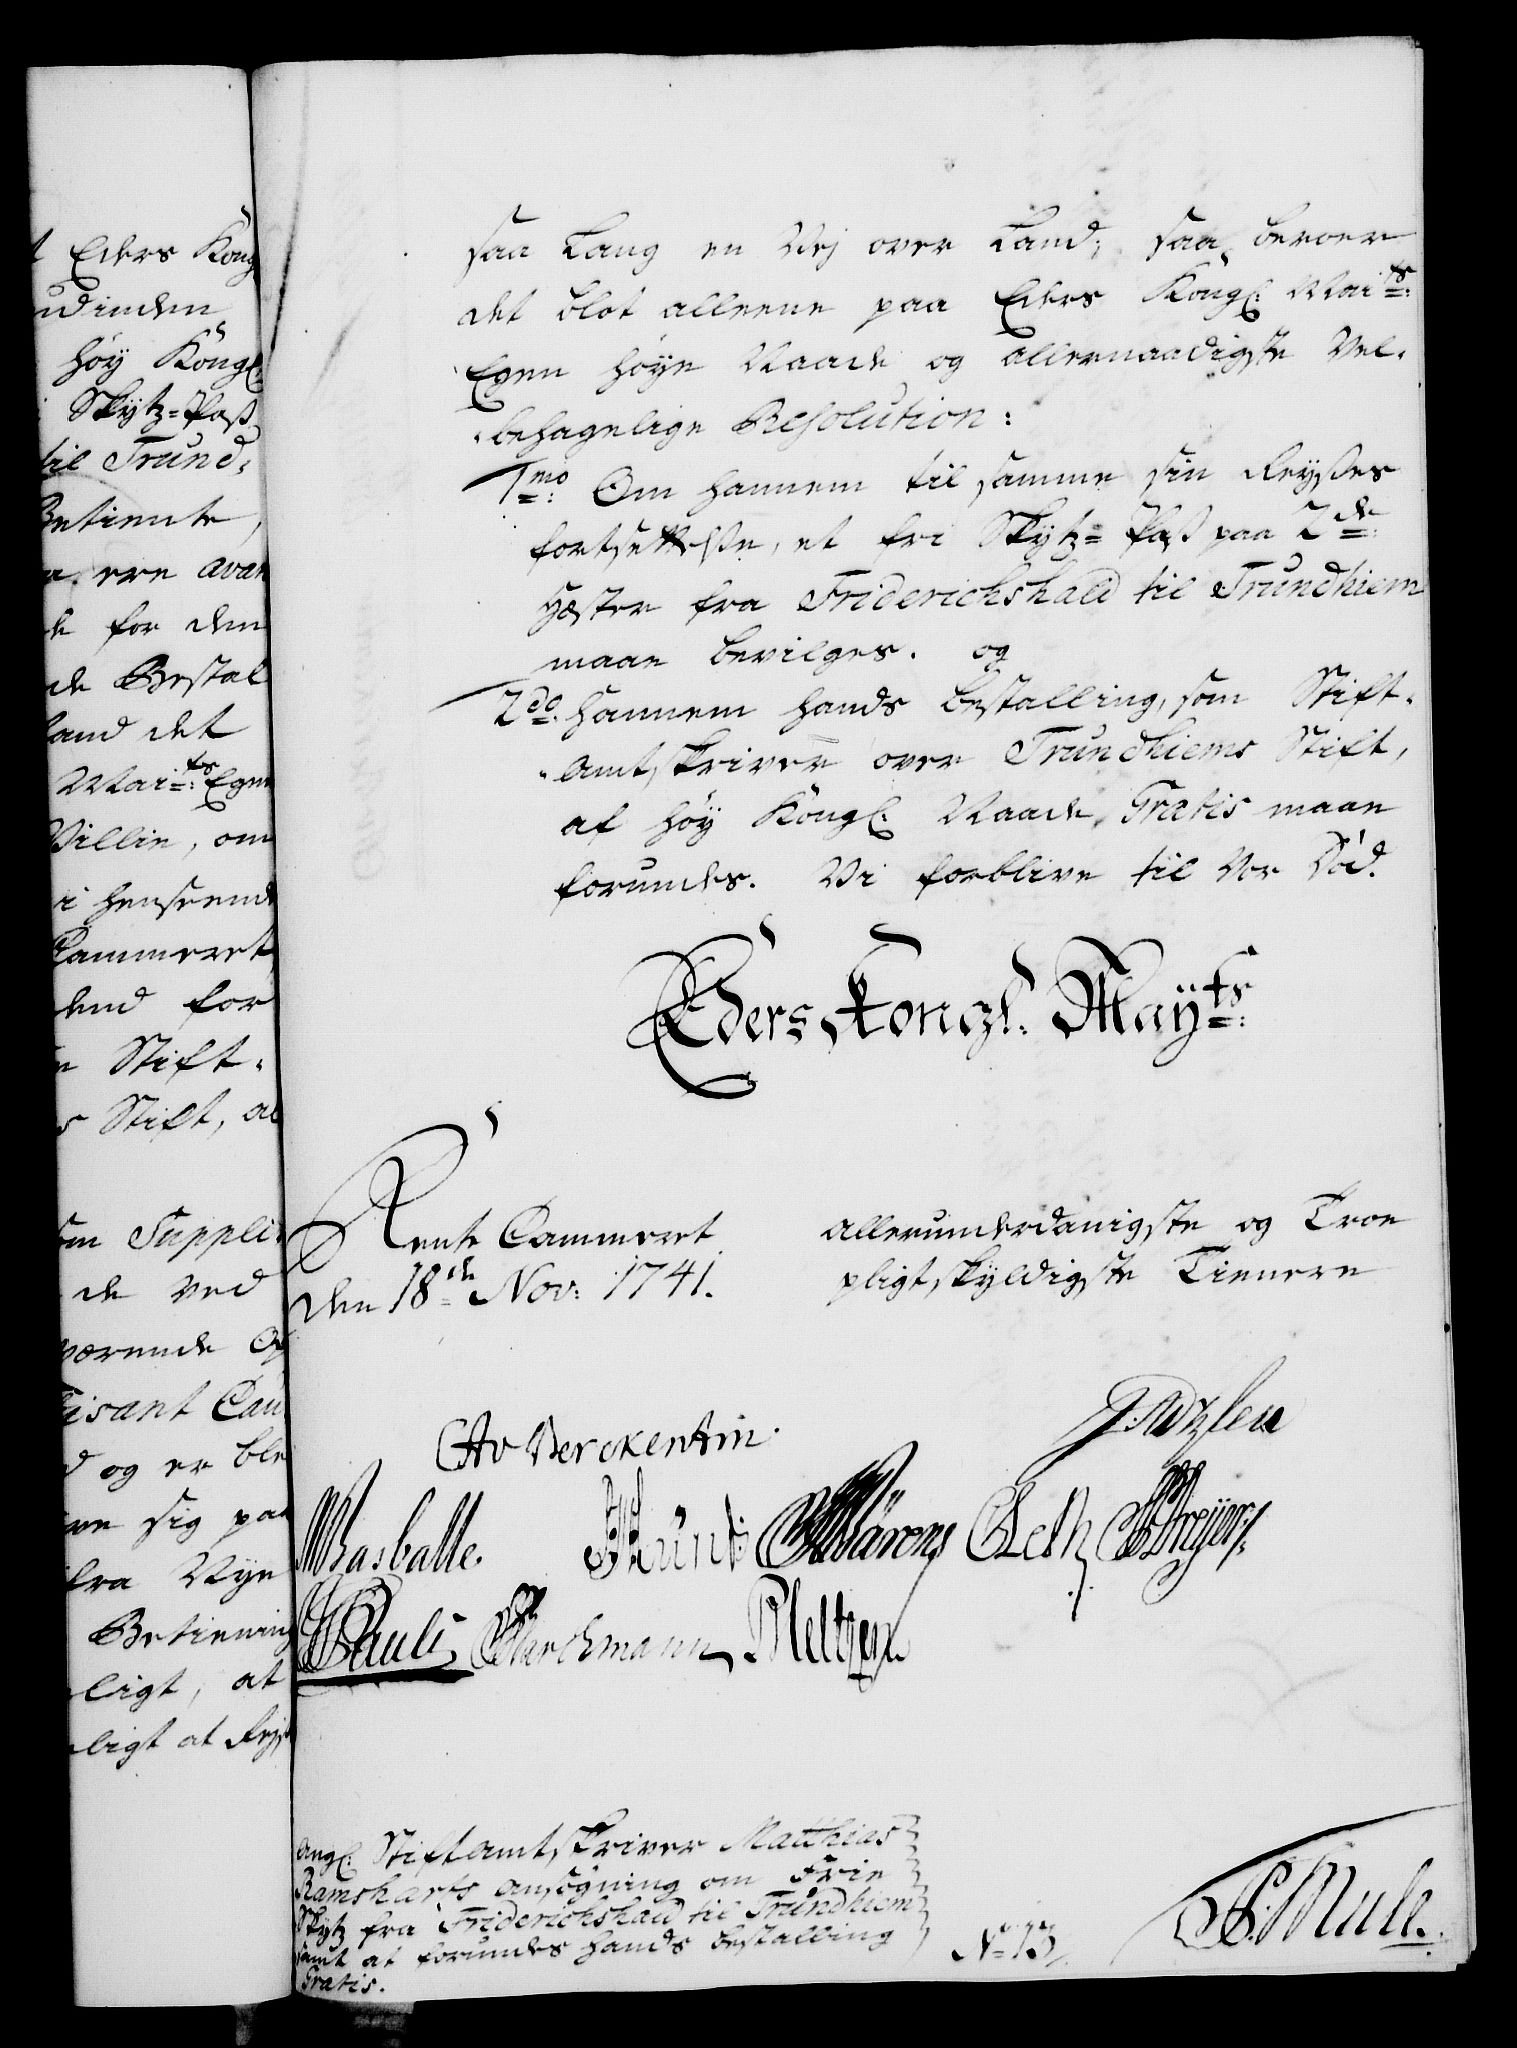 t Eders Kong
udinden
høy Kongl:
Skytz=Pass
til Trund=
Betiente,
ere avan
de for den
de Bestal
land det
Mai:ts Egen
Villie, om
i henseende
Cammeret
dend for
Stift=
s Stift, al
som Suppli
de ved
værende
isant Cau
d og er ble
sig paa
fra Nye
Betiening
ligt, at
ligt at Rejse
saa Lang en Vej over Land; saa beroer
det blot alleene paa Eders Kongl: Mai:ts
Egen høye Naade og allernaadigste Vel=
behagelige Resolution:
1mo: Om hannem til samme sin Reyses
fortsettelse, et fri Skytz=Pass paa 2de
Hæster fra Friderichshald til Trundhiem
maae bevilges. og
2do: hannem hands Bestalling, som Stift=
Amtskriver over Trundhiems Stift,
af høy Kongl: Naade, Gratis maae
forundes. Vi forblive til Vor Død.
Eders Kongl: Mayts:
Rente Cammeret
den 18de Nov: 1741.
allerunderdanigste og Troe
pligtskyldigste Tienere
CAv Berckentin.
Rasballe.
Pauli
Meltzen
Angl: Stiftamtskriver Matthias
Ramsharts ansøgning om Frie
Skytz fra Friderichshald til Trundhiem
samt at forundes hands bestalling
Gratis.
No 13
Mule.